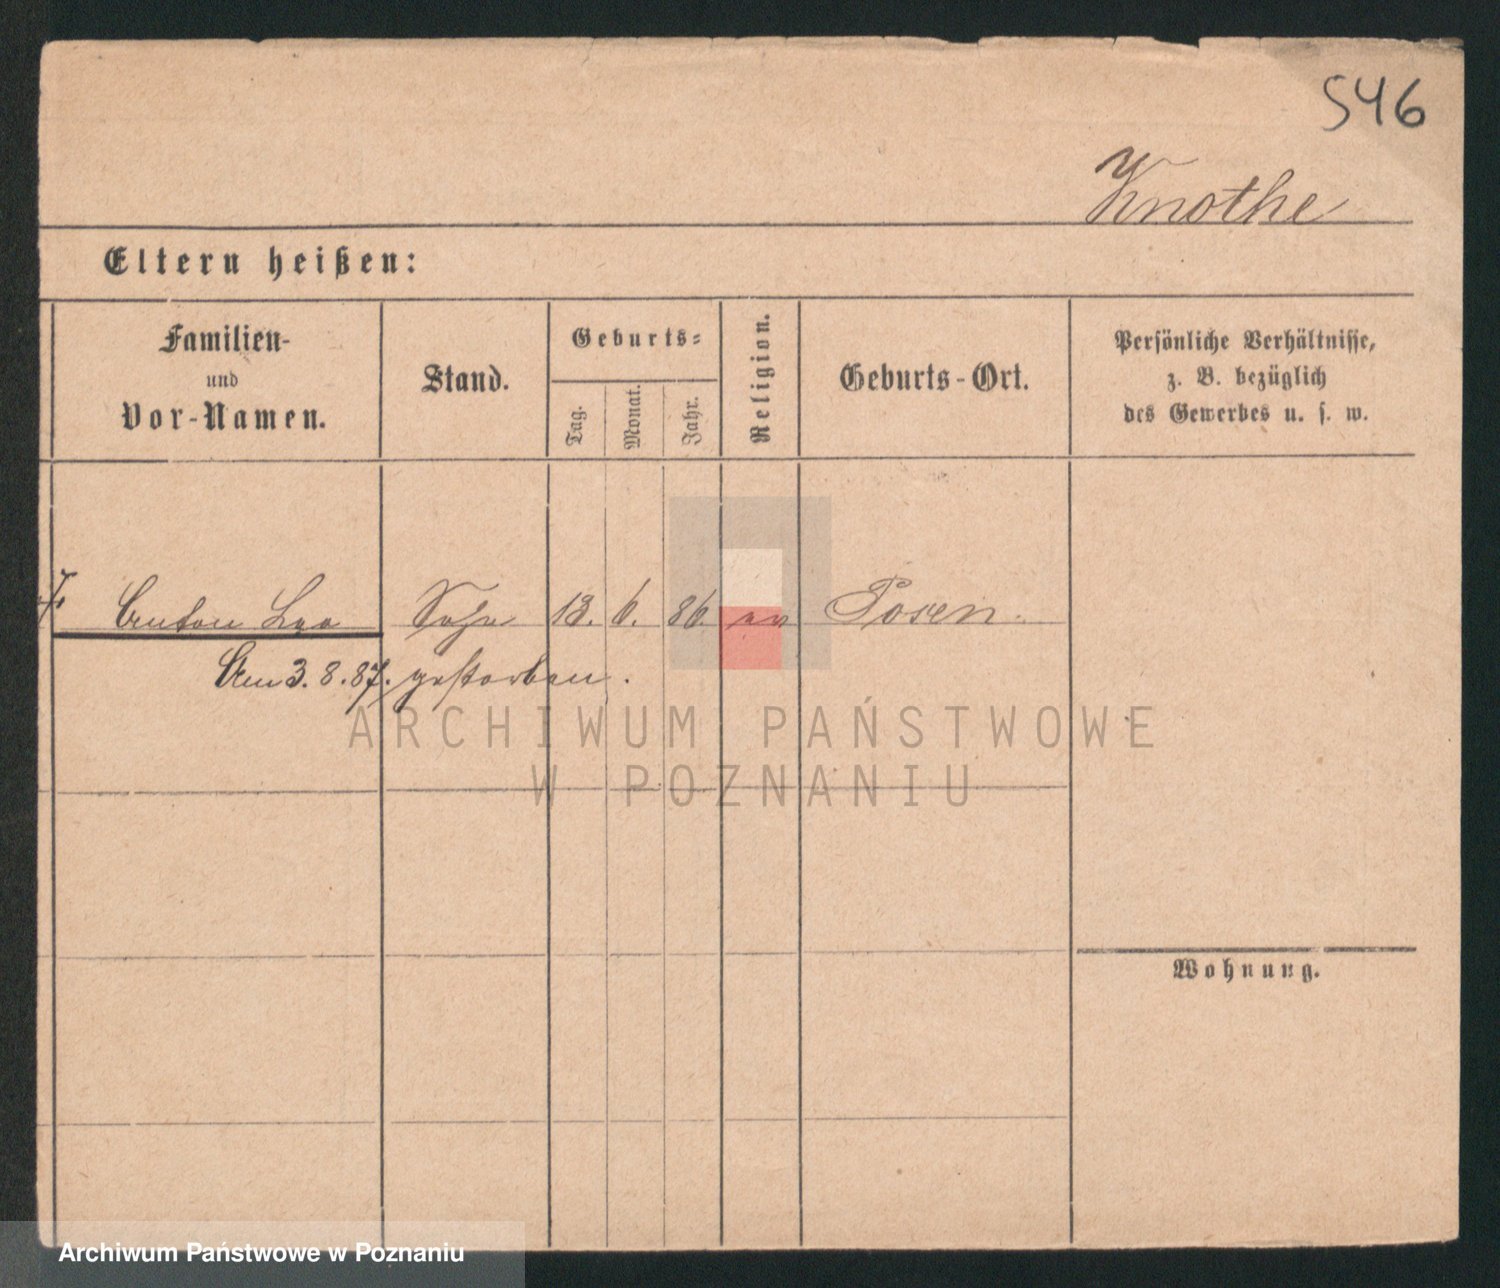 546
Knothe
Eltern heißen:
Familien-
und
Vor-Namen.
Stand.
Geburts-
Tag.
Monat.
Jahr.
Religion.
Geburts-Ort.
Persönliche Verhältnisse,
z. B. bezüglich
des Gewerbes u. s. w.
Anton Leo Sohn 13. 6. 86 ev Posen.
Am 3.8.87. gestorben.
Wohnung.
ARCHIWUM PAŃSTWOWE
W POZNANIU
Archiwum Państwowe w Poznaniu